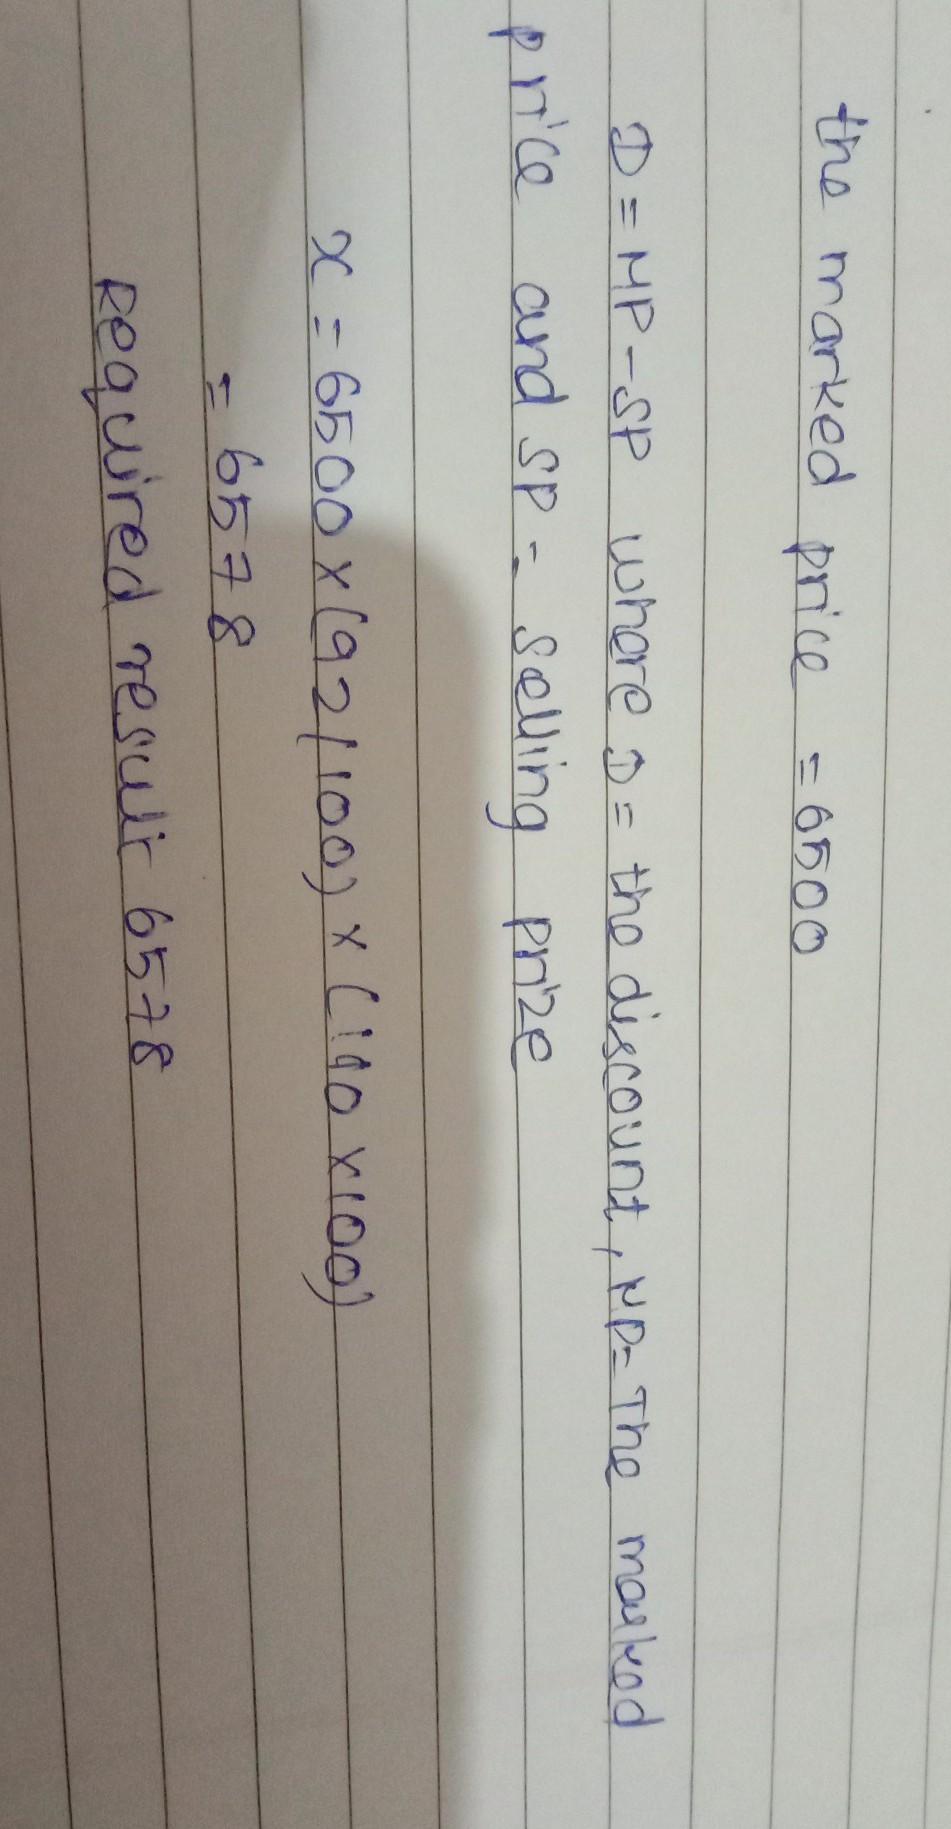 the marked price = 6500
D = MP - SP where D = the discount, MP = The marked
price and SP = selling prize
x = 6500 x (92/100) x (110 x 100)
= 6578
Required result 6578